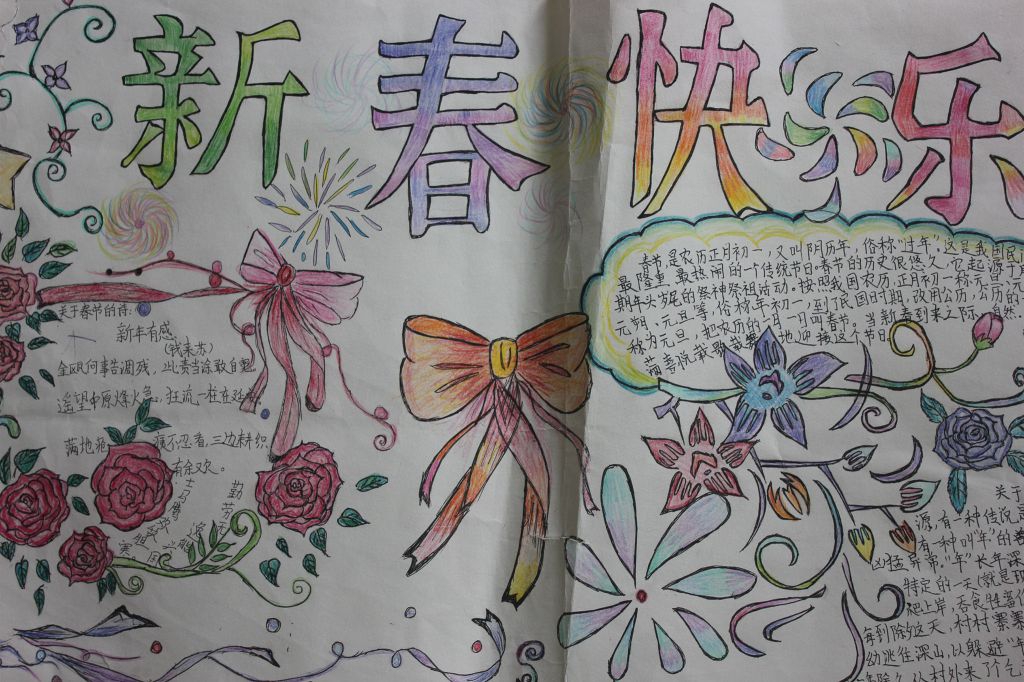 新春快乐
春节,是农历正月初一,又叫阴历年,俗称“过年”。这是我国民
最隆重、最热闹的一个传统节日。春节的历史很悠久,它起源于
期年头岁尾的祭神祭祖活动。按照我国农历,正月初一
元朔、元旦等,俗称年初一,到了民国时期,改用公历,公历的
称为元旦,把农历的一月一日叫春节。当新春到来之际,自然
地迎接这个节日。
关于春节的诗:
新年有感
(钱来苏)
金瓯何事告凋残,此责当涂敢自宽。
遥望中原烽火急,狂流一柱在延安。
满地疮痍不忍看,三边耕织
有余欢。
关于
源,有一种传说,
有一种叫“年”的
凶猛异常。“年”长年深
特定的一天(就是
爬上岸,吞食牲畜
每到除夕这天,村村寨寨
幼逃往深山,以躲避“
从村外来了个乞